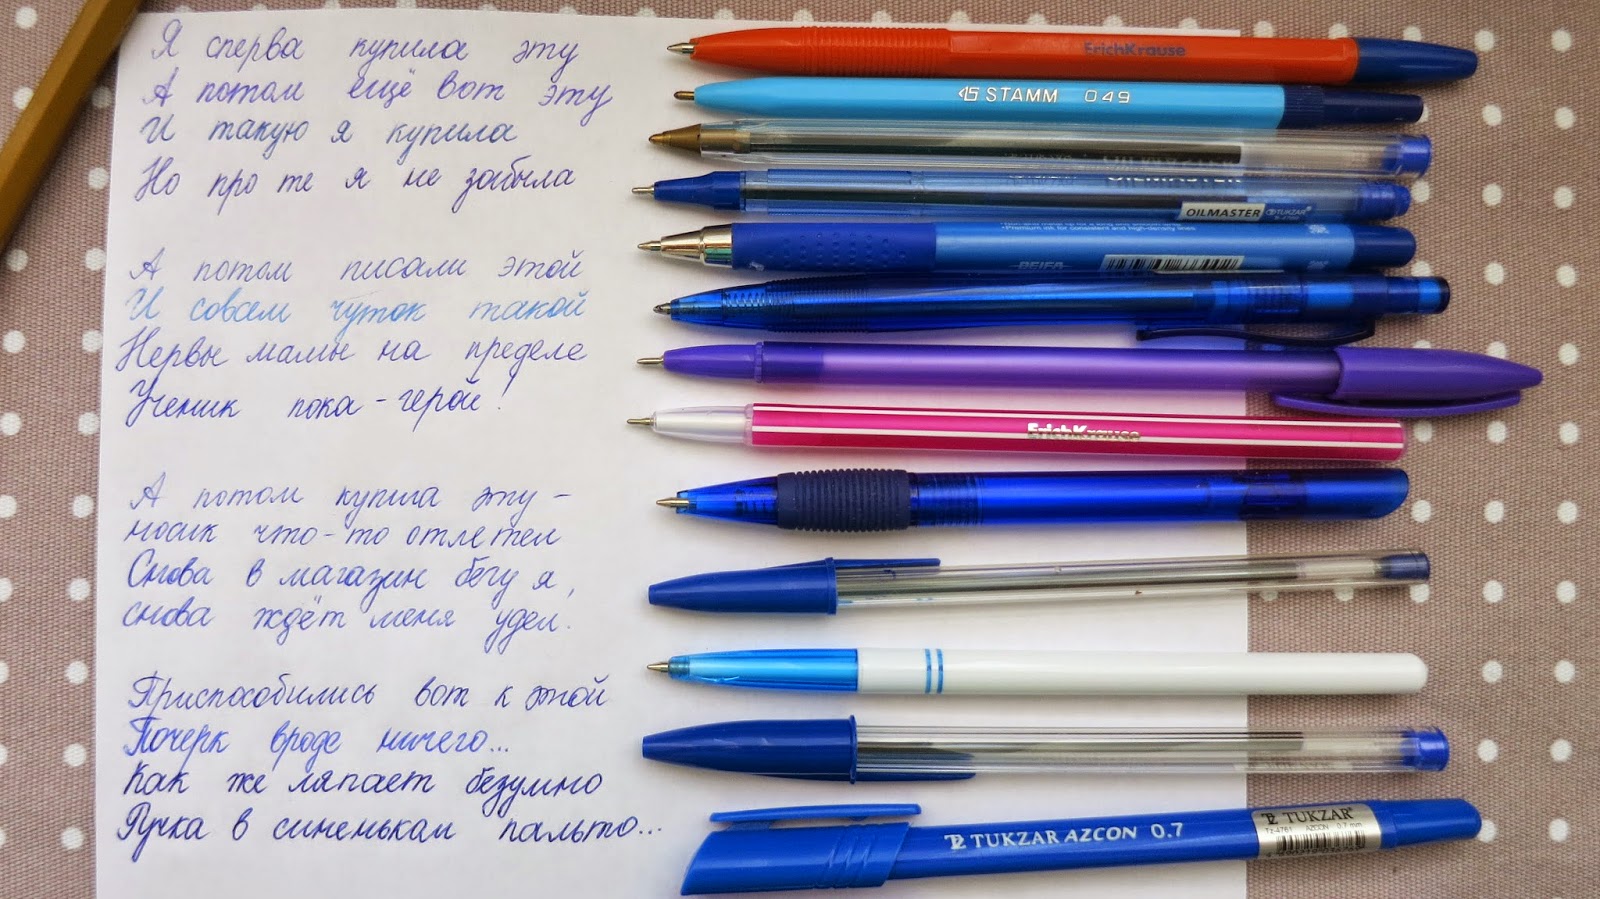 Я сперва купила эту
А потом ещё вот эту
И такую я купила
Но про те я не забыла
А потом писали этой
И совсем чуток такой
Нервы мамы на пределе
Ученик пока-герой!
А потом купила эту -
носик что-то отлетел
Снова в магазин бегу я,
снова ждёт меня удел.
Приспособились вот к этой
Почерк вроде ничего...
Как же ляпает безумно
Ручка в синеньком пальто...
ErichKrause
STAMM 049
OILMASTER
OILMASTER TUKZAR
Premium ink for consistent and high-density lines
BEIFA
ErichKrause
TUKZAR AZCON 0.7
TUKZAR
Tz-4761 AZCON 0.7 mm